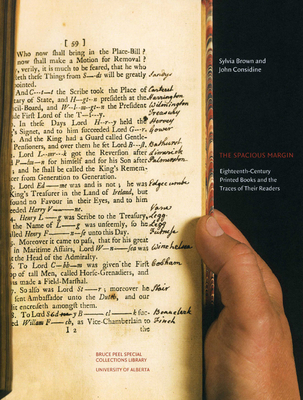 [ 59 ]
Who now shall bring in the Place-Bill?
now shall make a Motion for Removal?
verily, it is much to be feared, that he who
leth these Things from S—ds will be greatly Sandys
pointed.
And C—t the Scribe took the Place of Carteret
tary of State, and H—g—n presideth at the Harrington
cil-Board, and W—l—m—g—n the President Wilmington
de First Lord of the T—s—y. Treasury
In these Days Lord H—r—y held the Hervey
's Signet, and to him succeeded Lord G—r. Gower
And the King had a Guard called Gentle-
Pensioners, and over them he set Lord B—st, Bathurst
Lord L—k got the Reversion after Limerick
for himself and for his Son after Palmerston
and he shall be called the King's Remem-
er from Generation to Generation.
Lord Ed—me was and is not; he was Edgecombe
King's Treasurer in the Land of Ireland, but
ound no Favour in their Eyes, and to him
eeded Harry V—ne. Vane
Henry L—g was Scribe to the Treasury, Legg
the Name of L—g was unseemly, so he Legg
alled Henry F—n—se unto this Day. Furnese
Moreover it came to pass, that for his great
in Maritime Affairs, Lord W—n—sea was Winchelsea
at the Head of the Admiralty.
To Lord C—bm—m was given the First Cobham
op of tall Men, called Horse-Grenadiers, and
was made a Field-Marshal.
So also was Lord St—r; moreover he Stair
sent Ambassador unto the Dutch, and our
it encreaseth amongst them.
and William F—ch, as Vice-Chamberlain to Finch
I 2 the
Sylvia Brown and
John Considine
THE SPACIOUS MARGIN
Eighteenth-Century
Printed Books and the
Traces of Their Readers
BRUCE PEEL SPECIAL
COLLECTIONS LIBRARY
UNIVERSITY OF ALBERTA